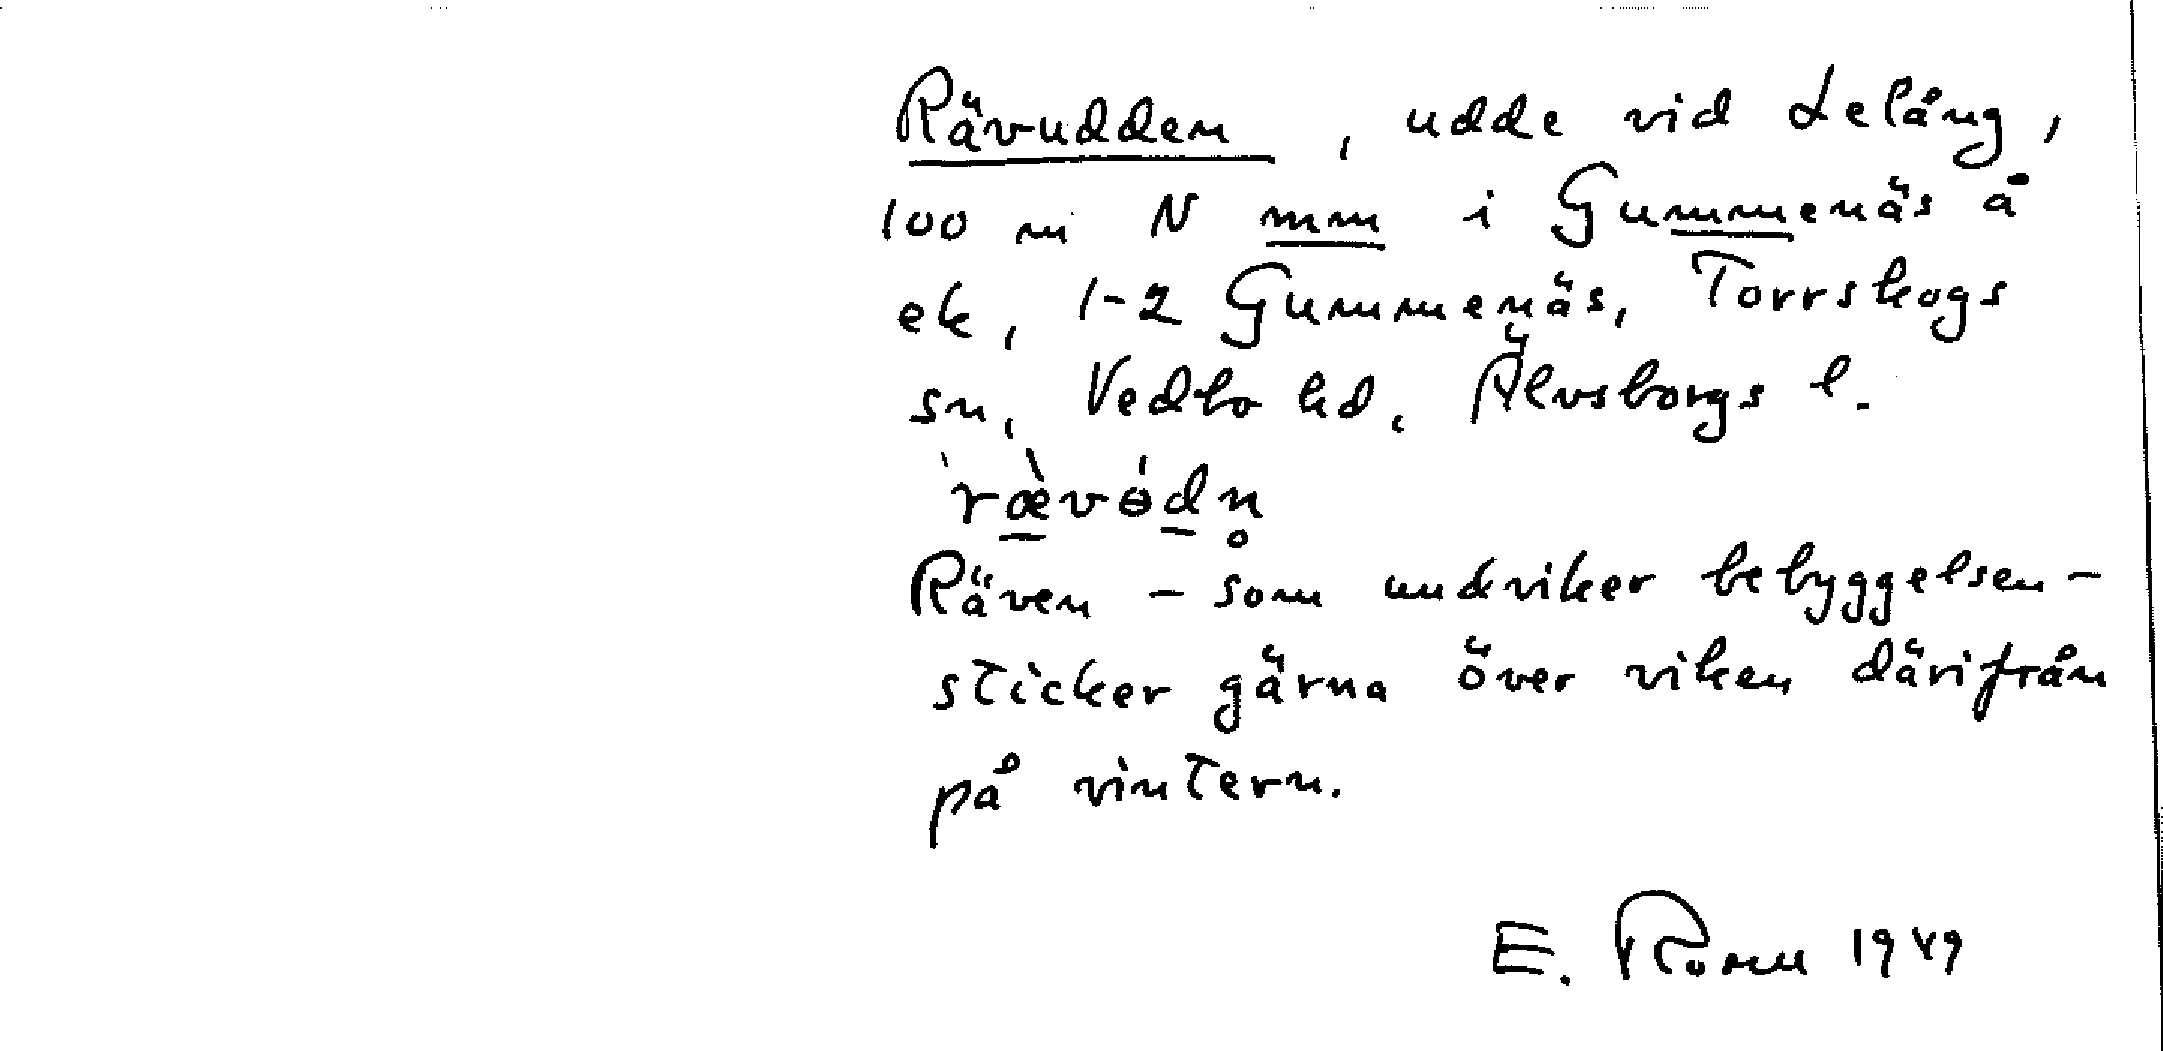 Rävudden, udde vid Lelång,
100 m N mm i Gummenäs å
ek, 1-2 Gummenäs, Torrskogs
sn, Vedbo hd, Älvsborgs l.
`ræ̀vɵ́dn̥
Räven – som undviker bebyggelsen –
sticker gärna över viken därifrån
på vintern.
E. 1949